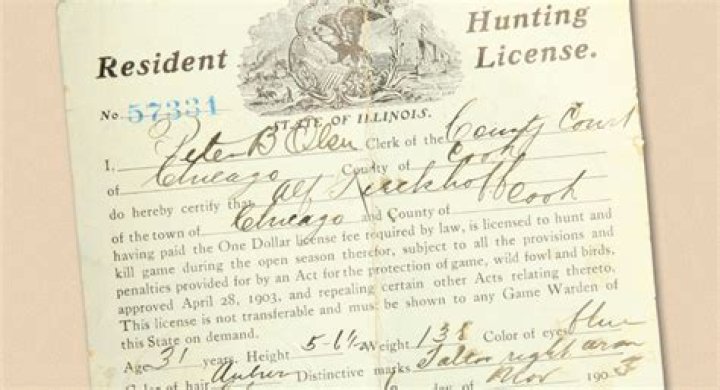 Resident Hunting License.
No. 57331
STATE OF ILLINOIS.
I, Peter B Olsen Clerk of the County Court
of Chicago County of Cook
do hereby certify that Alf
of the town of Chicago and County of Cook
having paid the One Dollar license fee required by law, is licensed to hunt and
kill game during the open season therefor, subject to all the provisions and
penalties provided for by an Act for the protection of game, wild fowl and birds,
approved April 28, 1903, and repealing certain other Acts relating thereto.
This license is not transferable and must be shown to any Game Warden of
this State on demand.
Age 31 years. Height 5-6½ Weight 138 Color of eyes blue
Color of hair Auburn Distinctive marks Tattoo right arm
day of Nov 190